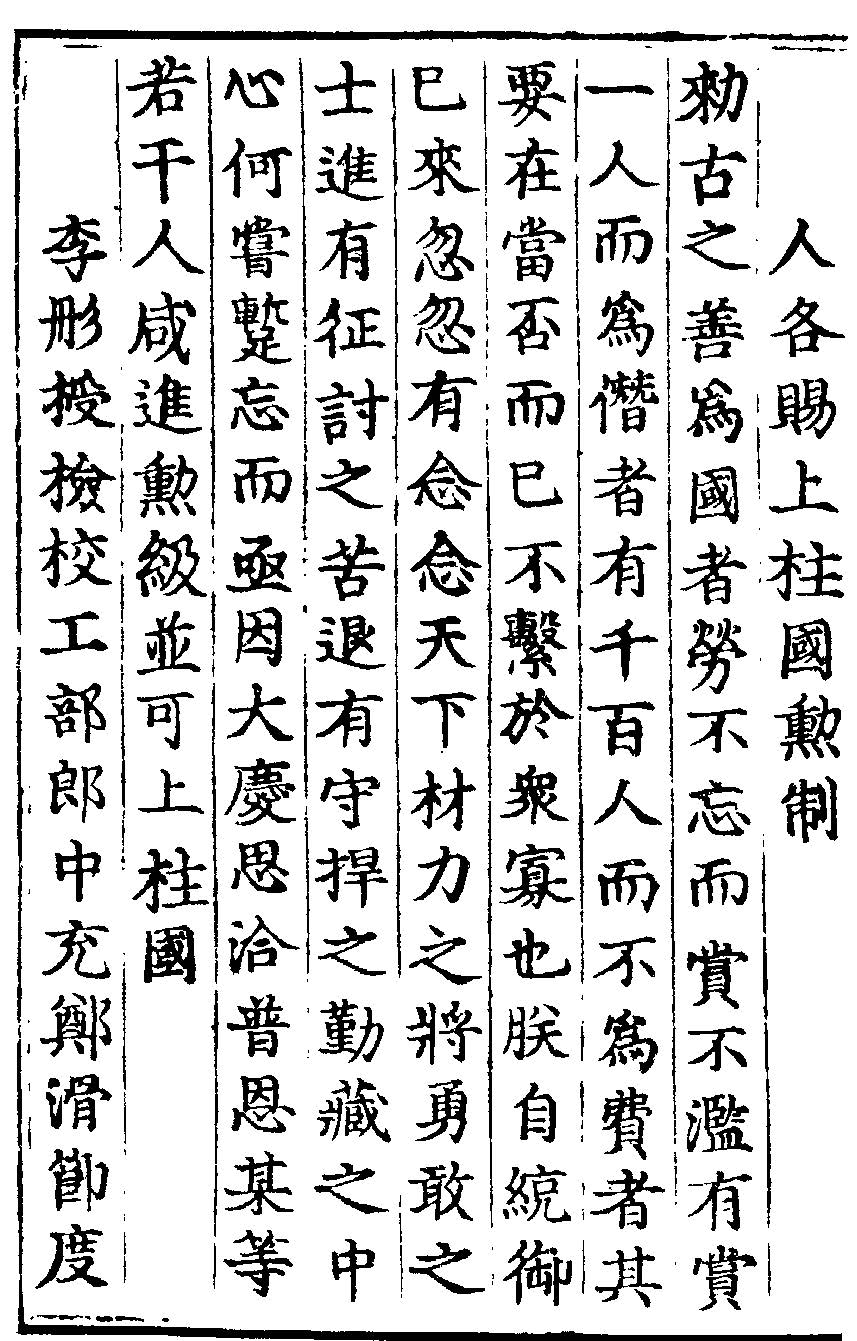 人各賜上柱國勲制
勑古之善爲國者勞不忘而賞不濫有賞
一人而爲僭者有千百人而不爲費者其
要在當否而已不繫於衆寡也朕自統御
已來忽忽有念念天下材力之將勇敢之
士進有征討之苦退有守捍之勤藏之中
心何嘗蹔忘而亟因大慶思洽普恩某等
若干人咸進勲級並可上柱國
李彤授檢校工部郎中充鄭滑節度